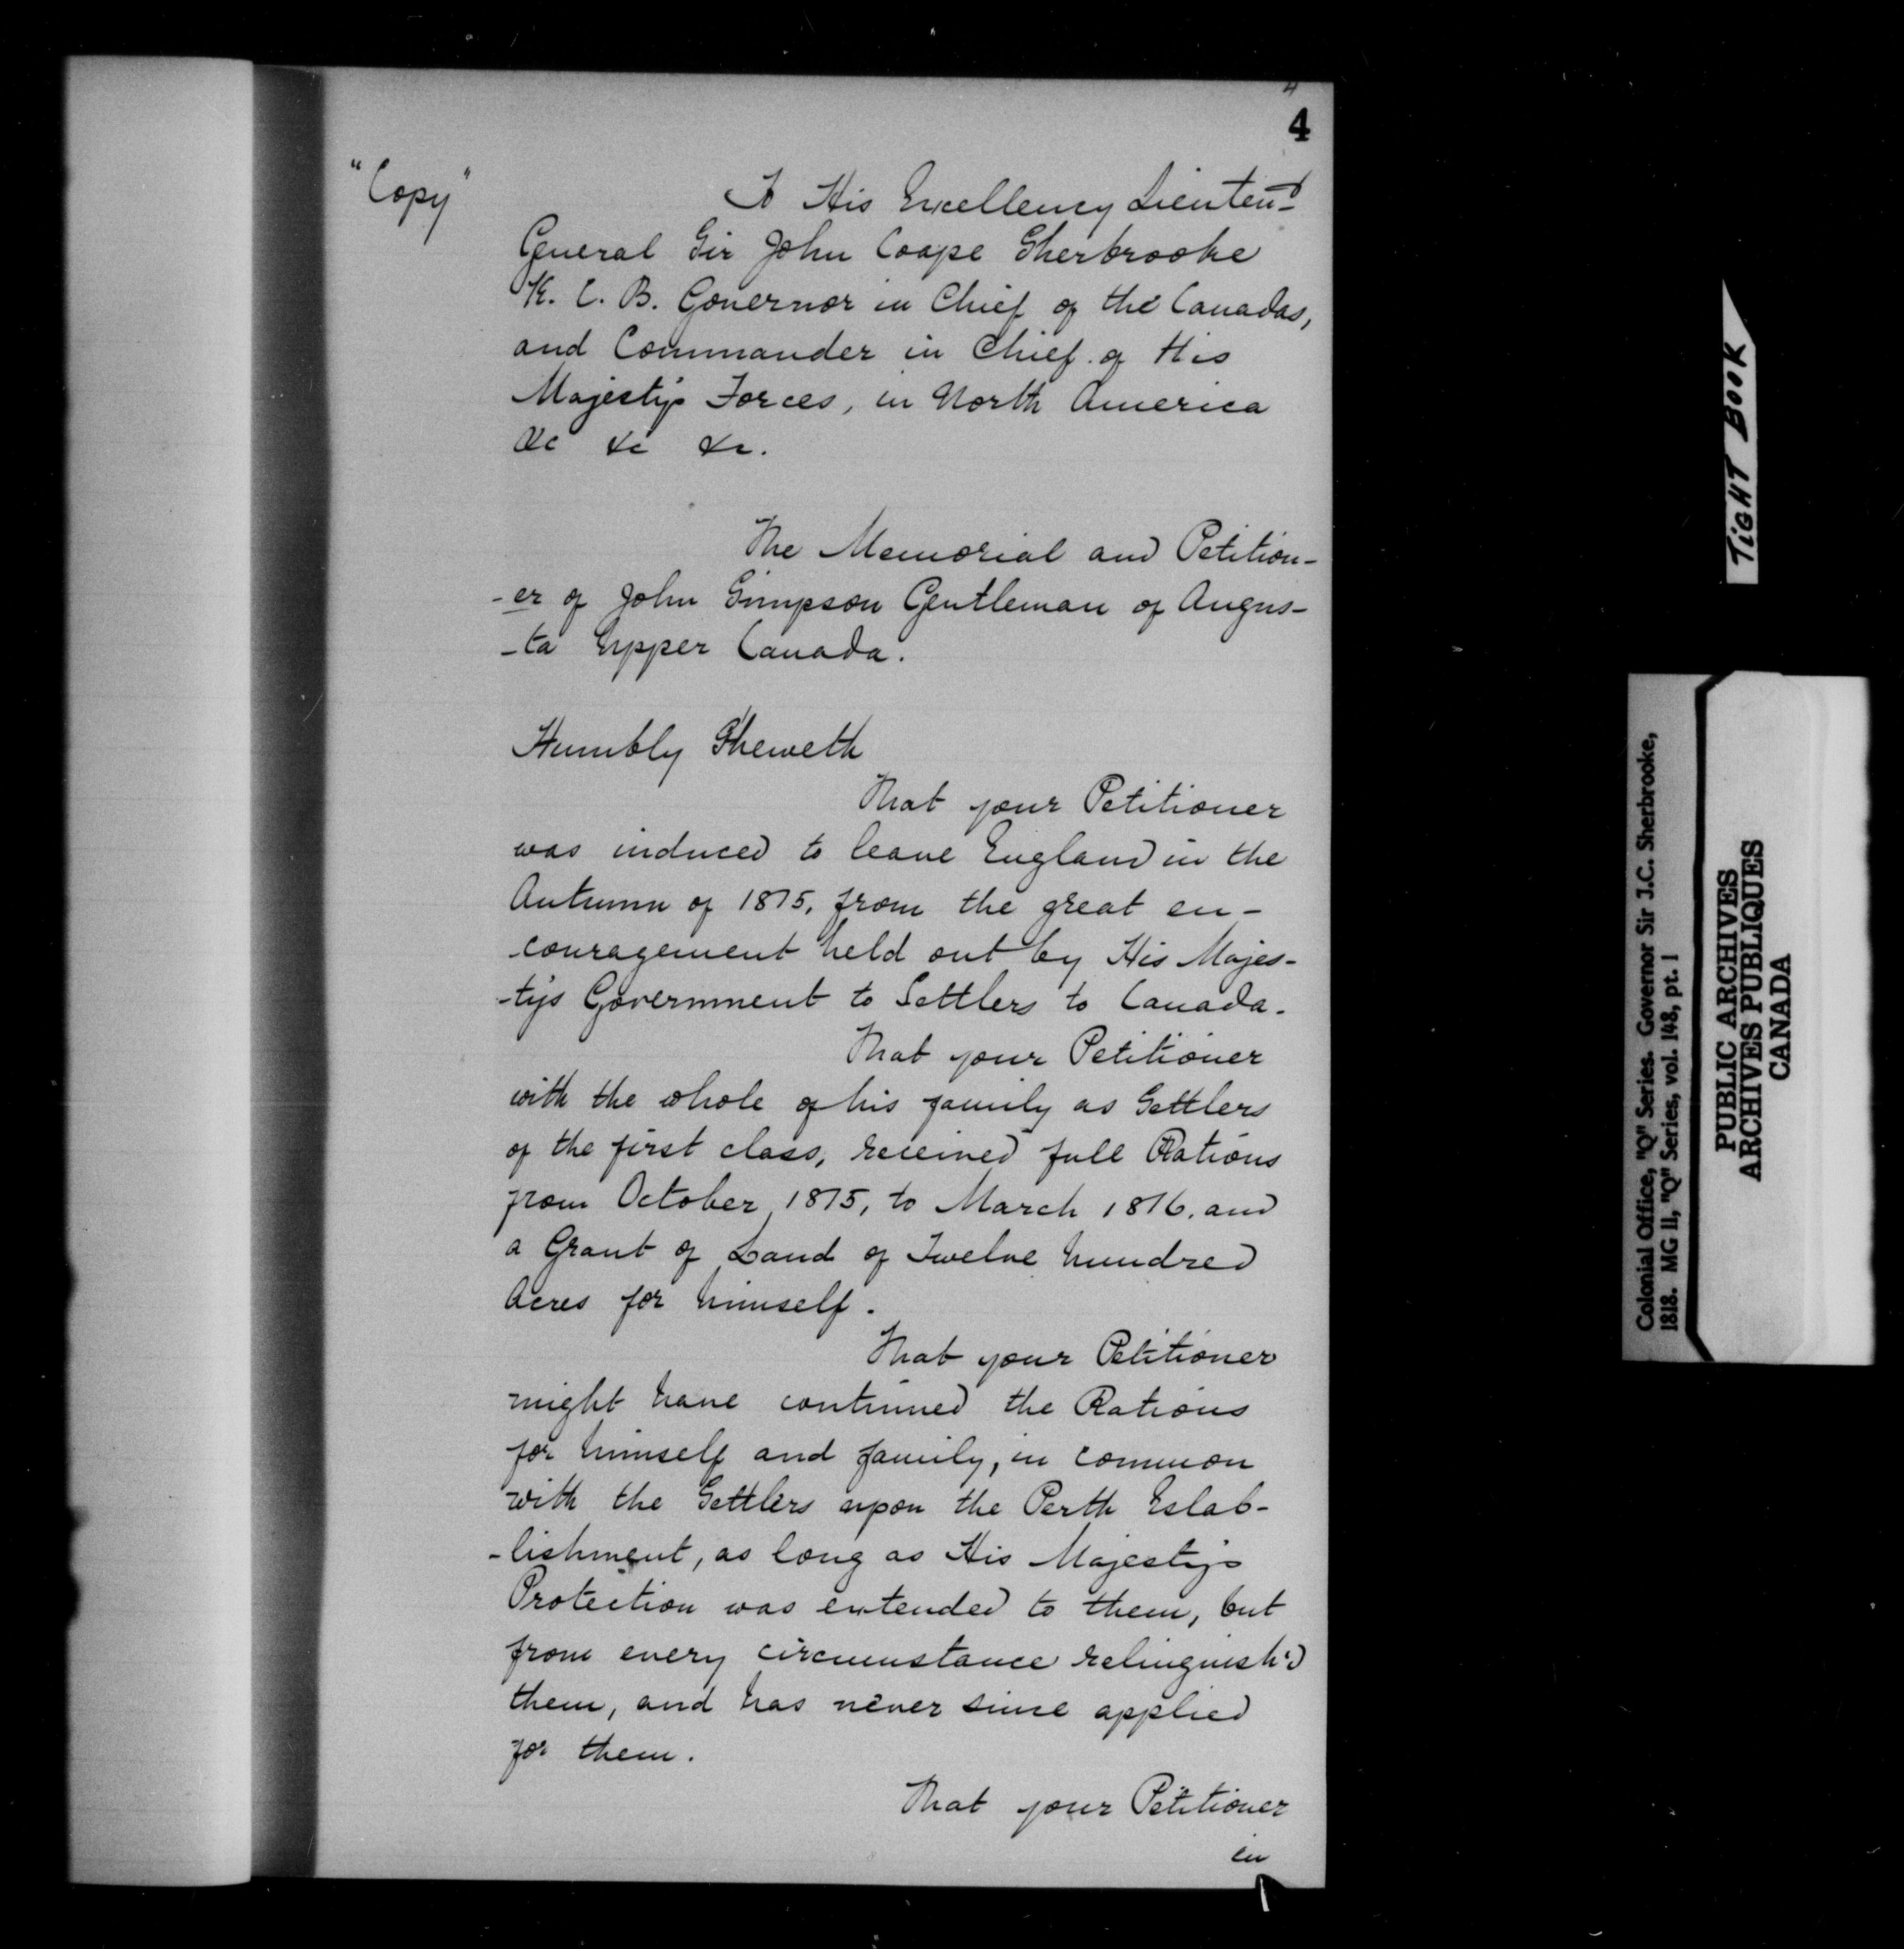 4
4
"Copy"
To His Excellency Lieutent
General Sir John Coape Sherbrooke
K. C. B. Governor in Chief of the Canadas,
and Commander in Chief of His
Majesty's Forces, in North America
&c &c &c.
The Memorial and Petition-
-er of John Simpson Gentleman of Augus-
-ta Upper Canada.
Humbly Sheweth
That your Petitioner
was induced to leave England in the
Autumn of 1815, from the great en-
couragement held out by His Majes-
-ty's Government to Settlers to Canada.
That your Petitioner
with the whole of his family as Settlers
of the first class, received full Rations
from October 1815, to March 1816. and
a Grant of Land of Twelve hundred
Acres for himself.
That your Petitioner
might have continued the Rations
for himself and family, in common
with the Settlers upon the Perth Estab-
-lishment, as long as His Majesty's
Protection was extended to them, but
from every circumstance relinquish'd
them, and has never since applied
for them.
That your Petitioner
in
TIGHT BOOK
Colonial Office, "Q" Series. Governor Sir J.C. Sherbrooke,
1818. MG 11, "Q" Series, vol. 148, pt. 1
PUBLIC ARCHIVES
ARCHIVES PUBLIQUES
CANADA